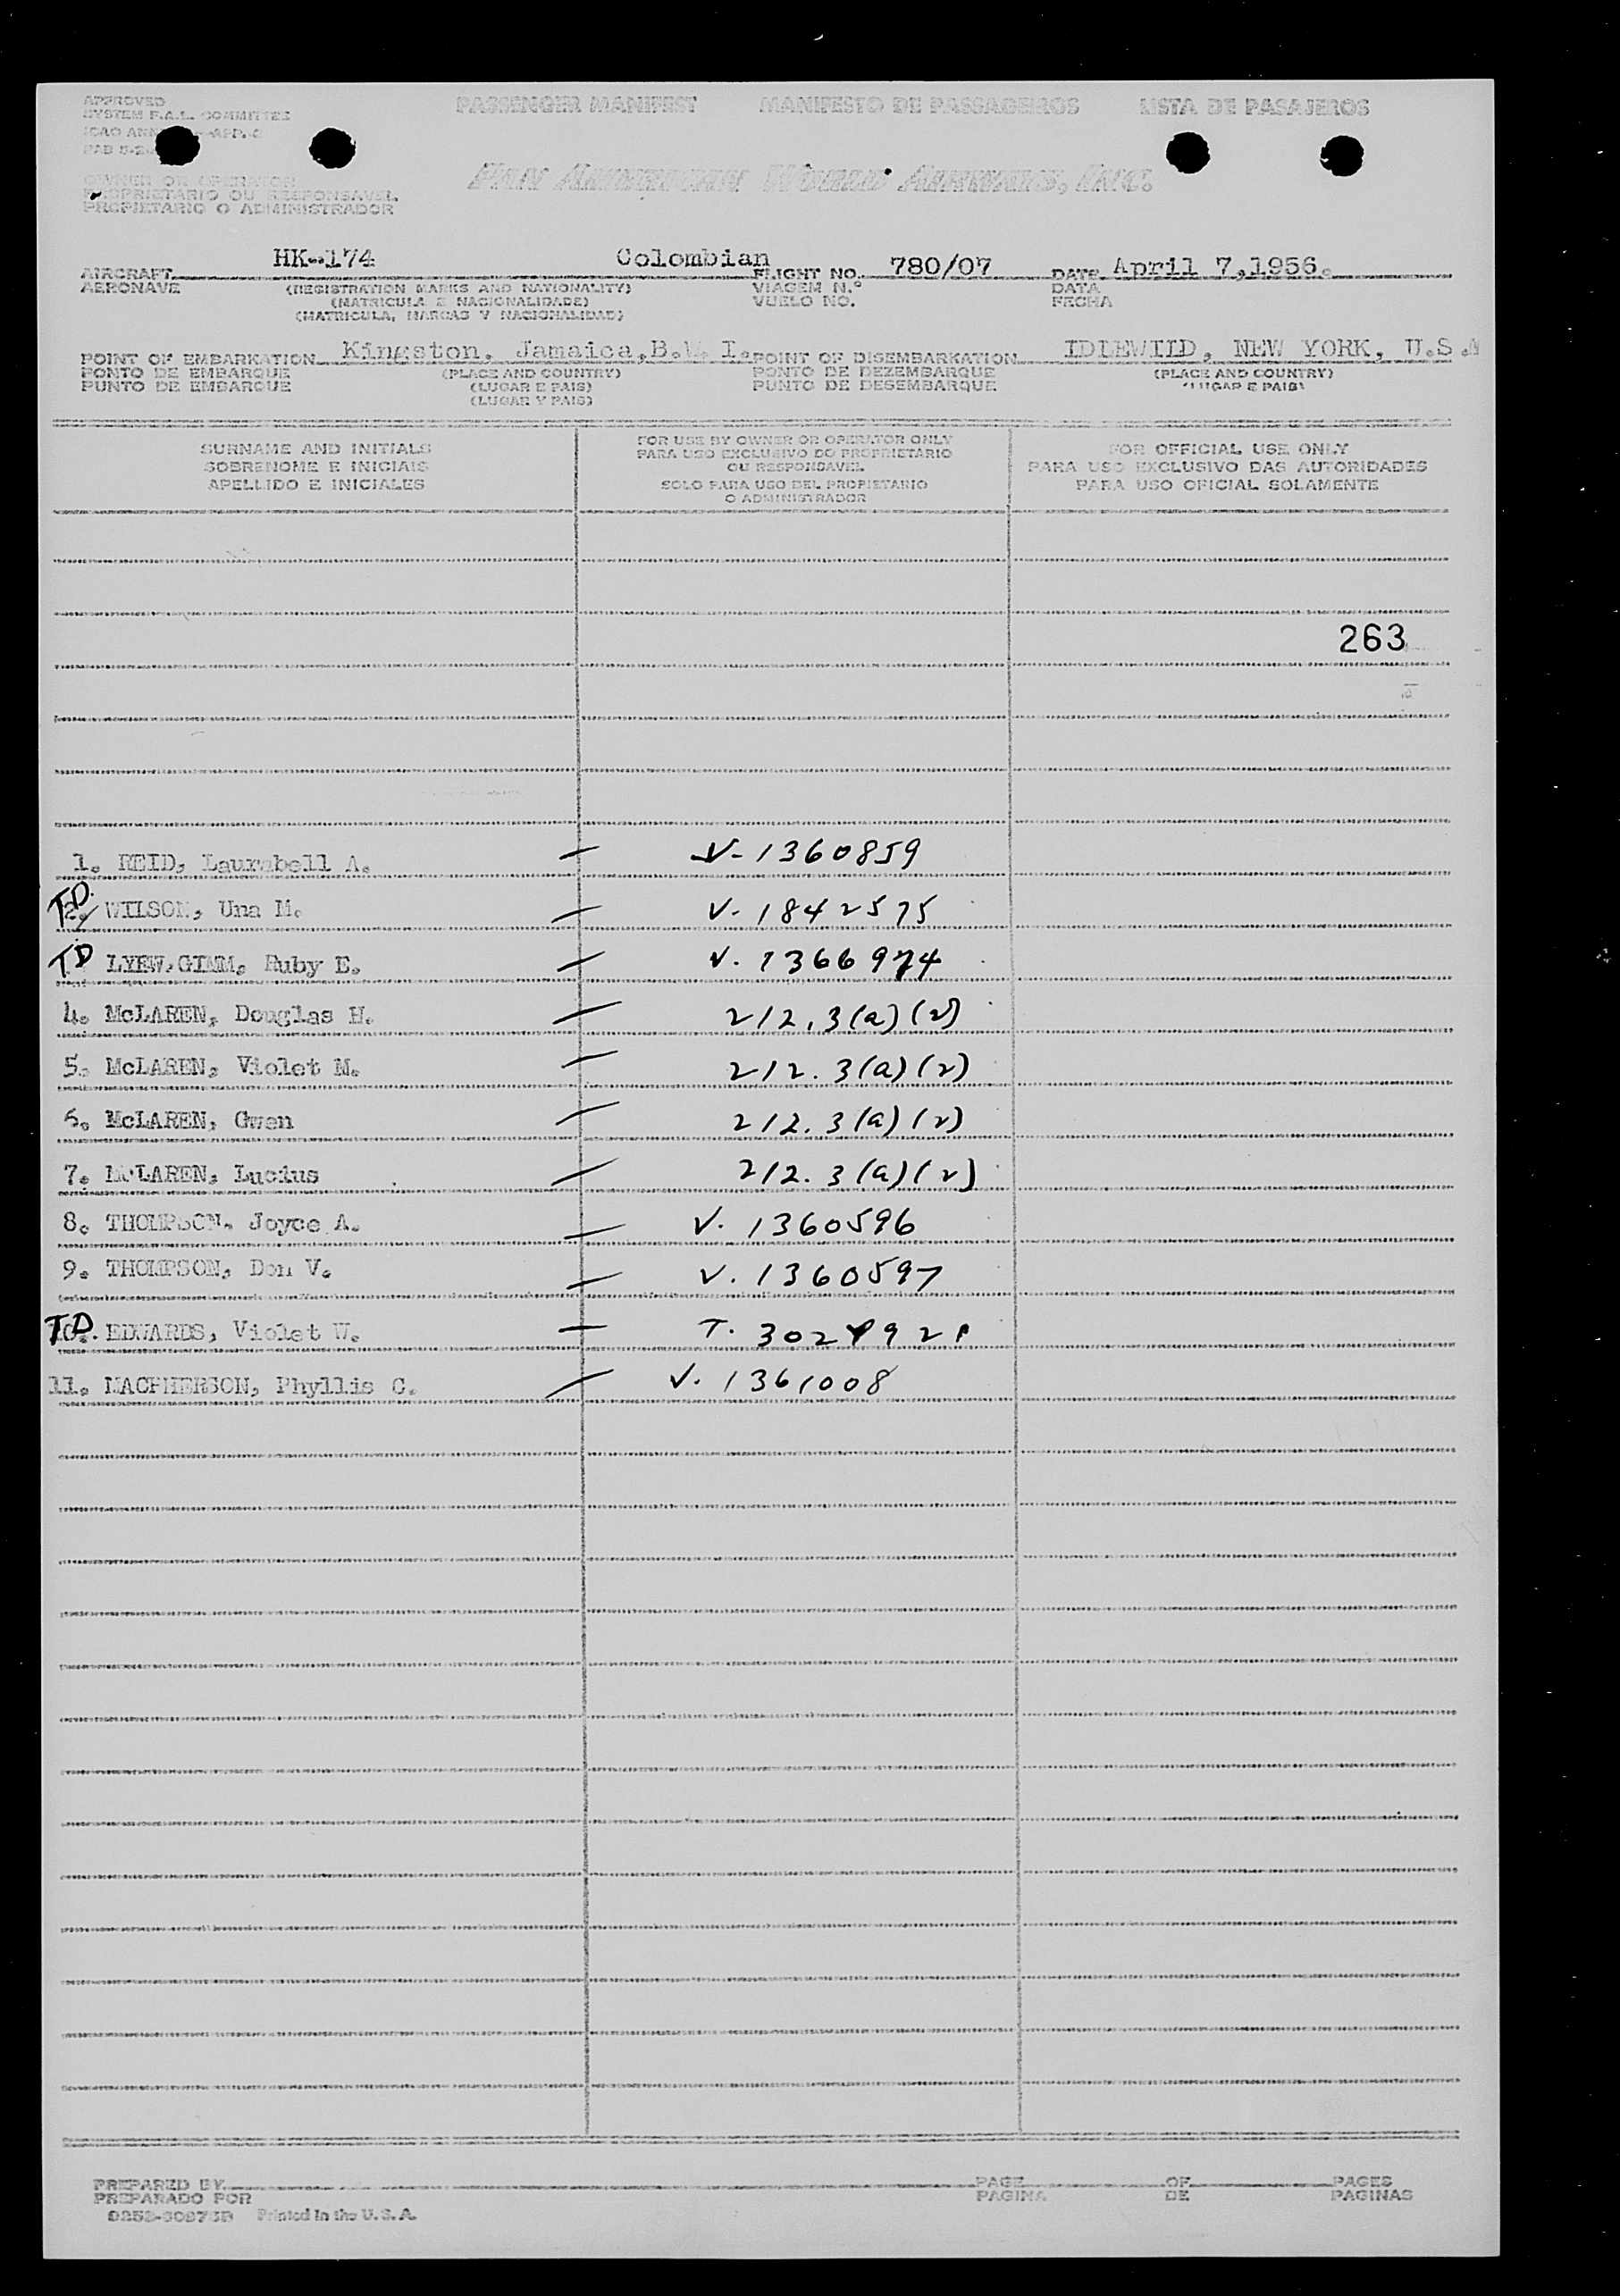 APPROVED PASSENGER MANIFEST MANIFESTO DE PASSAGEIROS LISTA DE PASAJEROS
SYSTEM F.A.L. COMMITTEE
ICAO
PAN AMERICAN WORLD AIRWAYS, INC.
OWNER OR OPERATOR
PROPRIETARIO OU RESPONSAVEL
PROPIETARIO O ADMINISTRADOR
AIRCRAFT HK-174 Colombian FLIGHT NO. 780/07 DATE April 7,1956.
AERONAVE (REGISTRATION MARKS AND NATIONALITY) VIAGEM N.º DATA
(MATRICULA E NACIONALIDADE) VUELO NO. FECHA
(MATRICULA, MARCAS Y NACIONALIDAD)
POINT OF EMBARKATION Kingston, Jamaica,B.W.I. POINT OF DISEMBARKATION IDLEWILD, NEW YORK, U.S.A
PONTO DE EMBARQUE (PLACE AND COUNTRY) PONTO DE DEZEMBARQUE (PLACE AND COUNTRY)
PUNTO DE EMBARQUE (LUGAR E PAIS) PUNTO DE DESEMBARQUE (LUGAR E PAIS)
(LUGAR Y PAIS)
SURNAME AND INITIALS
SOBRENOME E INICIAIS
APELLIDO E INICIALES
FOR USE BY OWNER OR OPERATOR ONLY
PARA USO EXCLUSIVO DO PROPRIETARIO
OU RESPONSAVEL
SOLO PARA USO DEL PROPIETARIO
O ADMINISTRADOR
FOR OFFICIAL USE ONLY
PARA USO EXCLUSIVO DAS AUTORIDADES
PARA USO OFICIAL SOLAMENTE
263
1. REID, Laurabell A. — V-1360859
T.D. 2. WILSON, Una M. — V. 1842575
TD LYEW.GIMM, Ruby E. — V. 1366974
4. McLAREN, Douglas H. — 212.3(a)(2)
5. McLAREN, Violet M. — 212.3(a)(2)
6. McLAREN, Gwen — 212.3(a)(2)
7. McLAREN, Lucius — 212.3(a)(2)
8. THOMPSON, Joyce A. — V. 1360596
9. THOMPSON, Don V. — V. 1360597
T.D. 10. EDWARDS, Violet W. — T.
11. MACPHERSON, Phyllis C. — V. 1361008
PREPARED BY PAGE OF PAGES
PREPARADO POR PAGINA DE PAGINAS
Printed in the U.S.A.